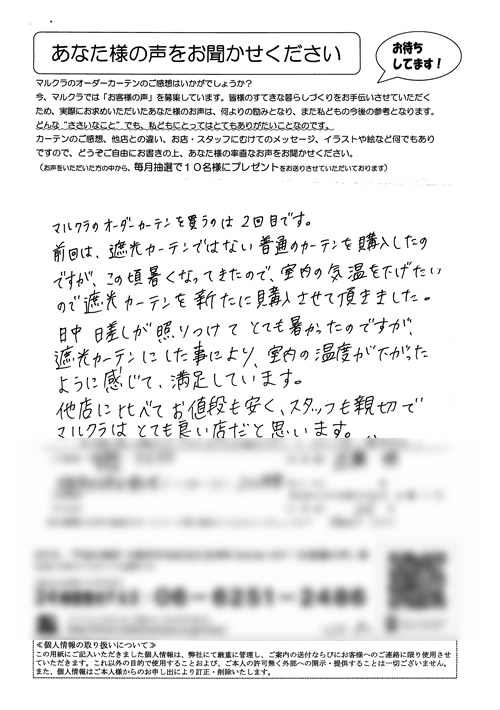 あなた様の声をお聞かせください
お待ち
してます!
マルクラのオーダーカーテンのご感想はいかがでしょうか?
今、マルクラでは「お客様の声」を募集しています。皆様のすてきな暮らしづくりをお手伝いさせていただく
ため、実際にお求めいただいたあなた様のお声は、何よりの励みとなり、また私どもの今後の参考となります。
どんな“ささいなこと”でも、私どもにとってはとてもありがたいことなのです。
カーテンのご感想、他店との違い、お店・スタッフにむけてのメッセージ、イラストや絵など何でもあり
ですので、どうぞご自由にお書きの上、あなた様の率直なお声をお聞かせください。
(お声をいただいた方の中から、毎月抽選で10名様にプレゼントをお送りさせていただいております)
マルクラのオーダーカーテンを買うのは2回目です。
前回は、遮光カーテンではない普通のカーテンを購入したの
ですが、この頃暑くなってきたので、室内の気温を下げたい
ので遮光カーテンを新たに購入させて頂きました。
日中日差しが照りつけてとても暑かったのですが、
遮光カーテンにした事により、室内の温度が下がった
ように感じて、満足しています。
他店に比べてお値段も安く、スタッフも親切で
マルクラはとても良い店だと思います。
06-6251-2486
≪個人情報の取り扱いについて≫
この用紙にご記入いただきました個人情報は、弊社にて厳重に管理し、ご案内の送付ならびにお客様へのご連絡に限り使用させ
ていただきます。これ以外の目的で使用することおよび、ご本人の許可無く外部への開示・提供することは一切ございません。
また、個人情報はご本人様からのお申し出により訂正・削除いたします。